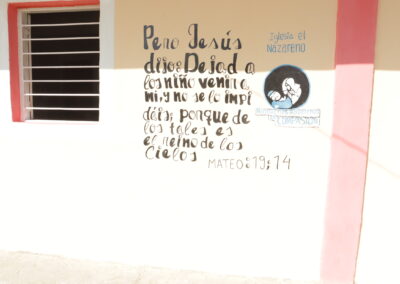 Pero Jesús
dijo: Dejad a
los niño venir a
mi, y no se lo impi
dáis; porque de
los tales es
el reino de los
Cielos
MATEO: 19; 14
Iglesia el
Nazareno
COMPASION